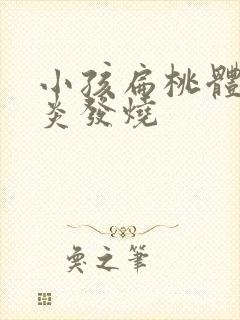 小孩扁桃體
炎發燒
奐之筆